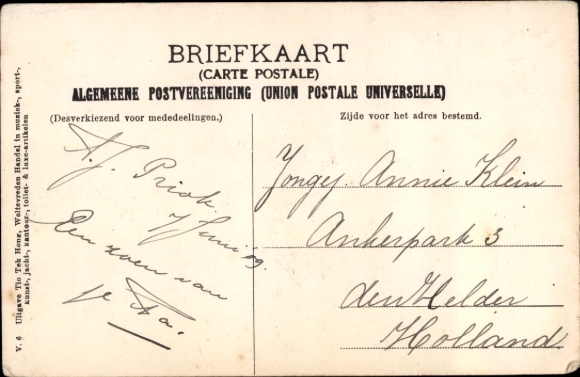 BRIEFKAART
(CARTE POSTALE)
ALGEMEENE POSTVEREENIGING (UNION POSTALE UNIVERSELLE)
(Desverkiezend voor mededeelingen.)
Zijde voor het adres bestemd.
V. 6 Uitgave Tio Tek Hong, Weltevreden Handel in musiek-, sport-,
kunst-, jacht-, kantoor-, toilet- & luxe-artikelen
T. Priok
Juni 09.
Een zoen van
Pa.
Jongej. Annie Klein
Ankerpark 3
den Helder
Holland